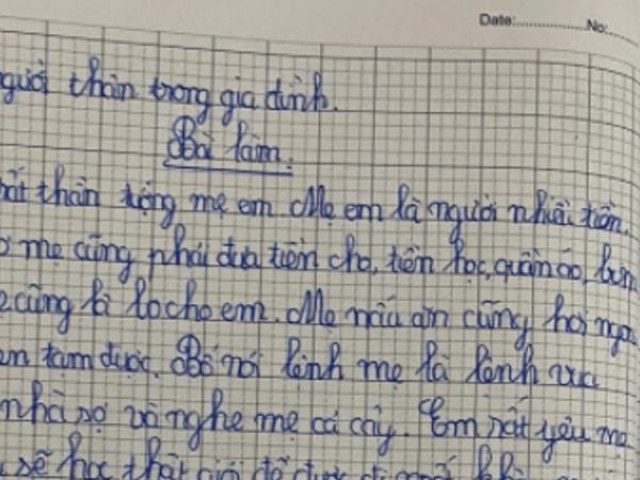 Date:..................No:
người thân trong gia đình.
Bài làm.
thân tặng mẹ em Mẹ em là người nhiều tiền.
mẹ cũng phải đưa tiền cho, tiền học, quần áo,
cũng là lo cho em. Mẹ nấu ăn cũng hơi
tạm được. Bố nói lệnh mẹ là lệnh vua
nhà sợ và nghe mẹ cả cây. Em rất yêu mẹ
sẽ học thật giỏi để được đi